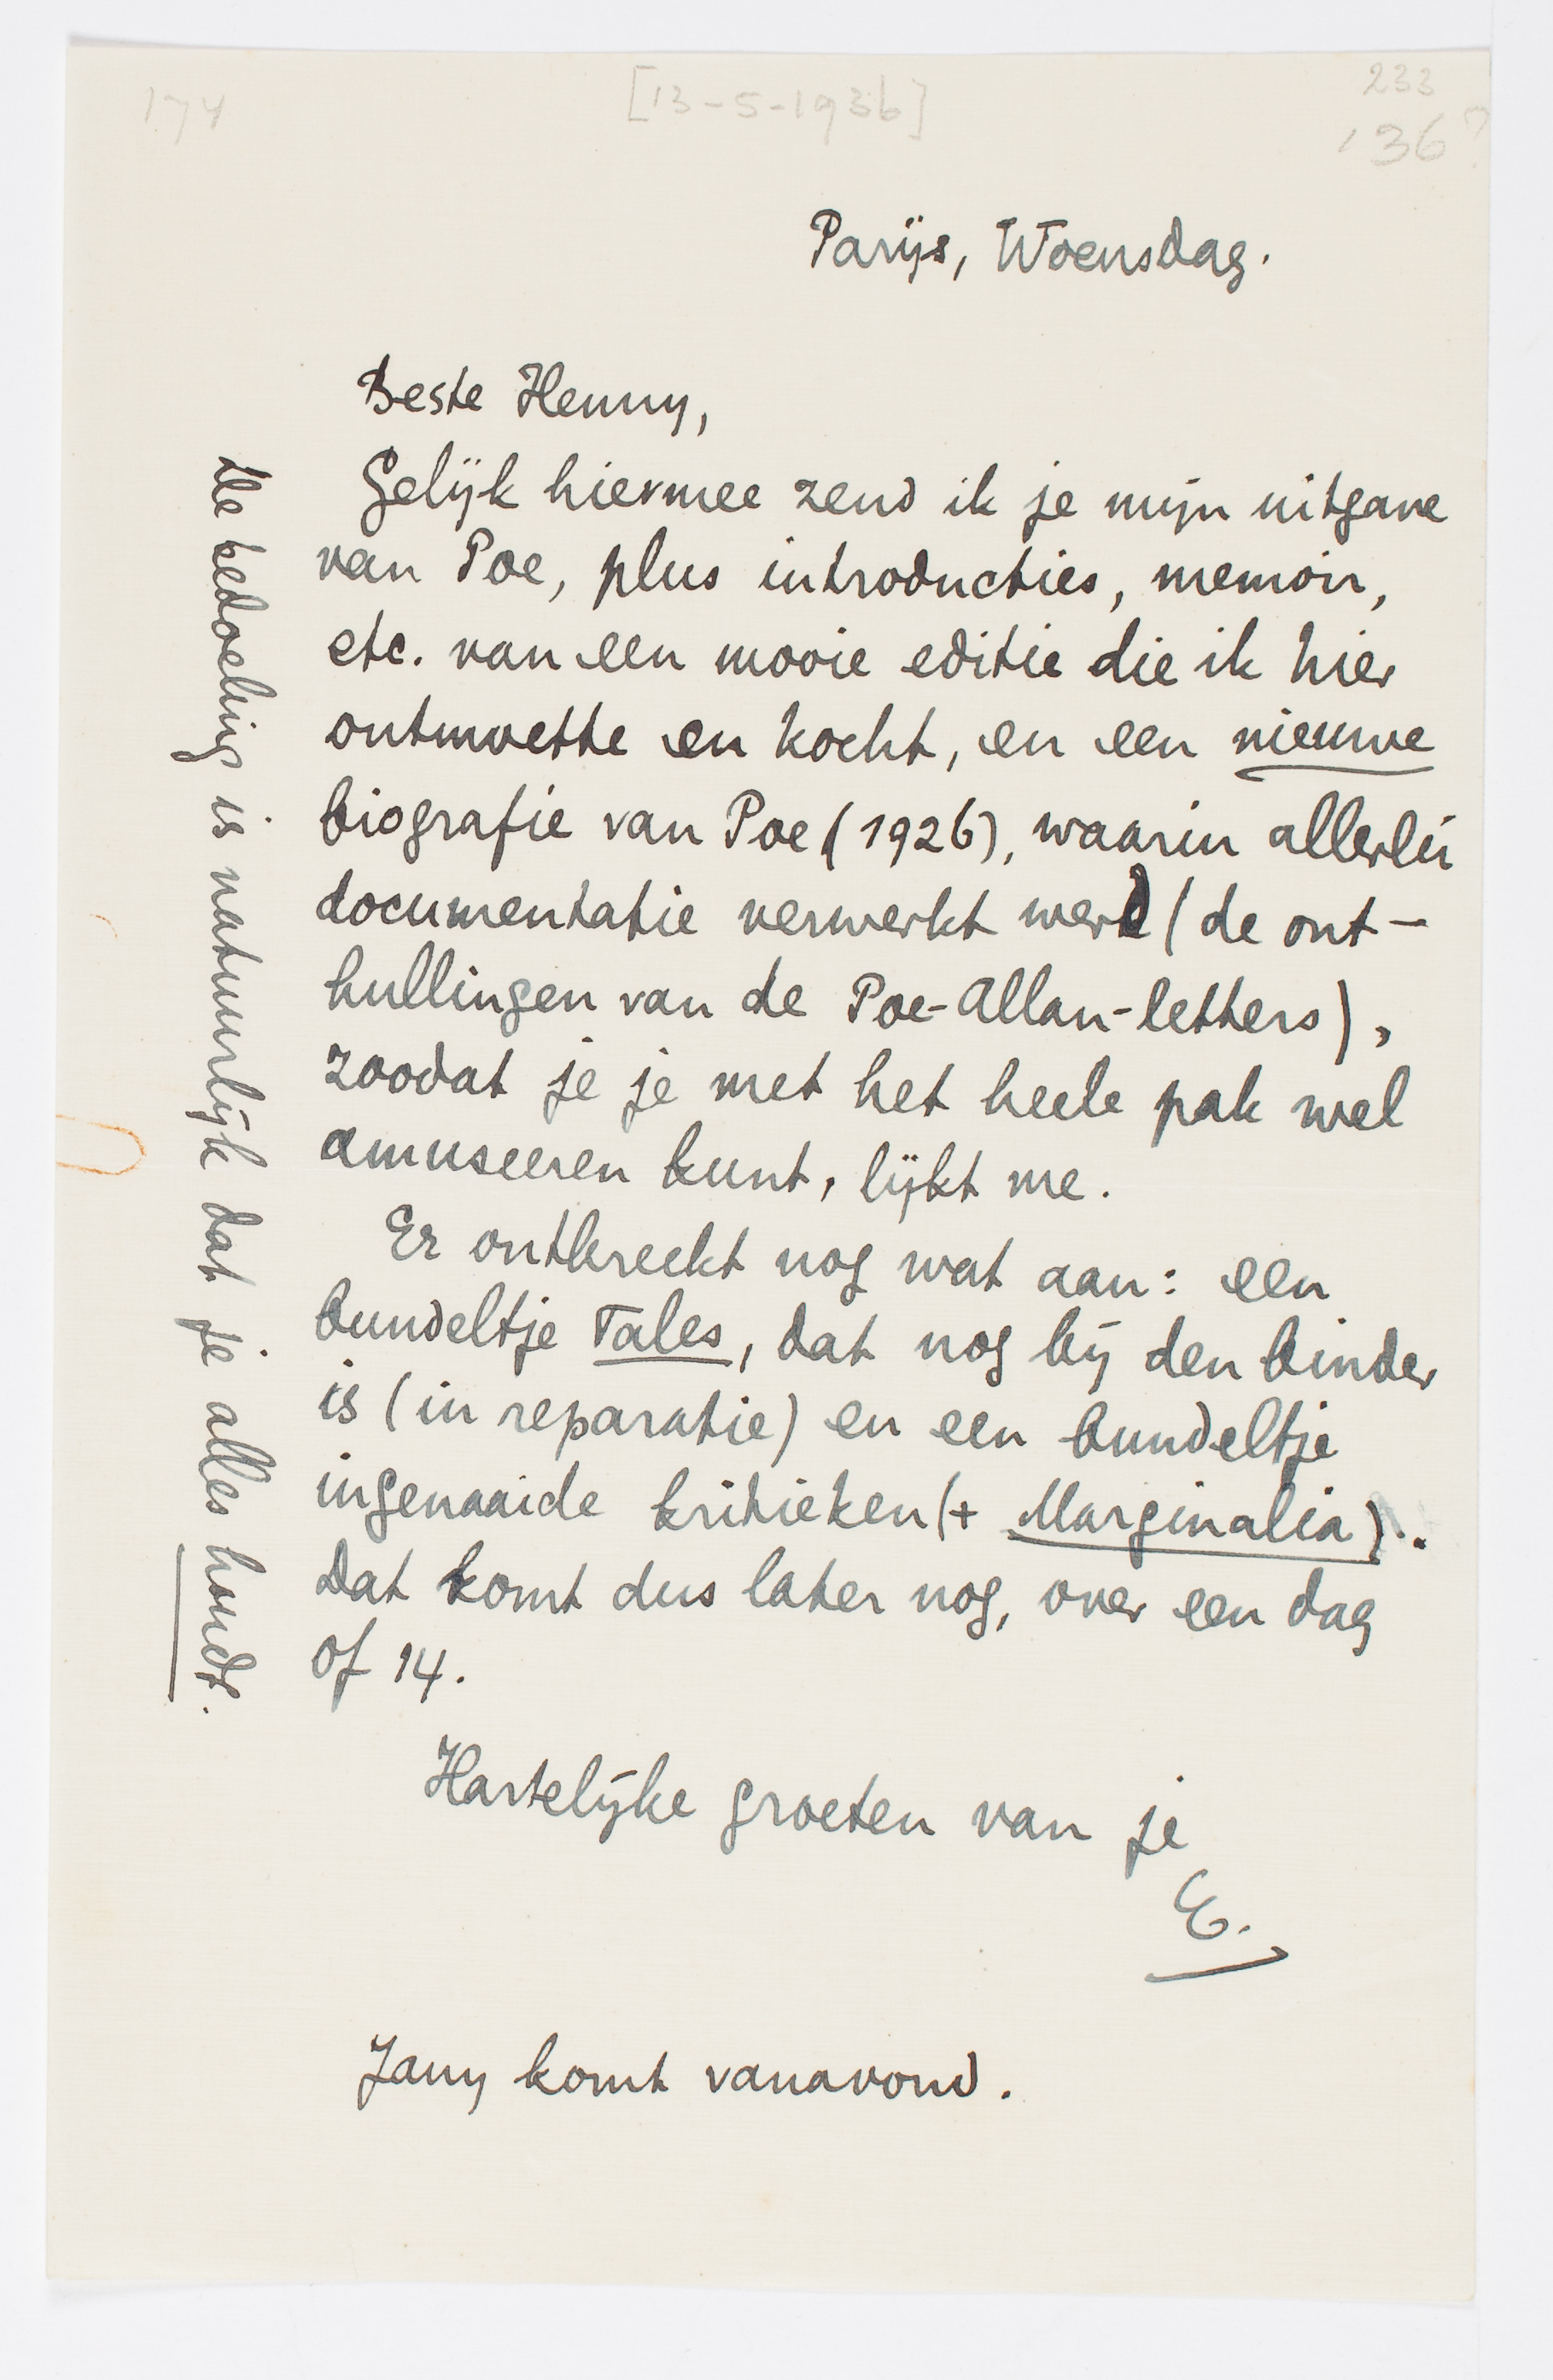 174
[13-5-1936]
233
'36?
Parijs, Woensdag.
Beste Henny,
Gelijk hiermee zend ik je mijn uitgave
van Poe, plus introducties, memoir,
etc. van een mooie editie die ik hier
ontmoette en kocht, en een nieuwe
biografie van Poe (1926), waarin allerlei
documentatie verwerkt werd (de ont-
hullingen van de Poe-Allan-letters),
zoodat je je met het heele pak wel
amuseeren kunt, lijkt me.
Er ontbreekt nog wat aan: een
bundeltje Tales, dat nog bij den binder
is (in reparatie) en een bundeltje
ingenaaide kritieken (+ Marginalia).
Dat komt dus later nog, over een dag
of 14.
Hartelijke groeten van je
E.
Jany komt vanavond.
De bedoeling is natuurlijk dat je alles houdt.